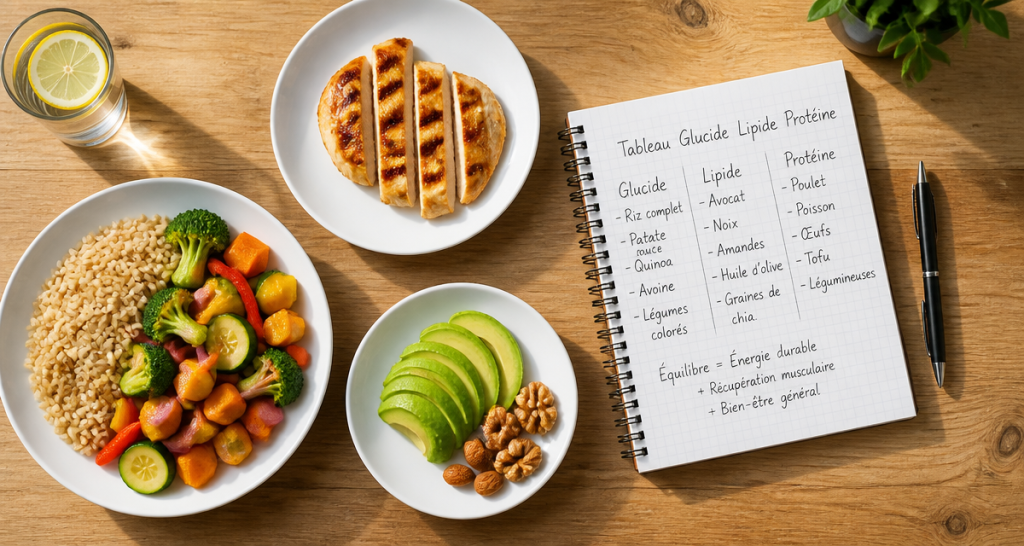 Tableau Glucide Lipide Protéine
Glucide
- Riz complet
- Patate
rouce
- Quinoa
- Avoine
- Légumes
colorés
Lipide
- Avocat
- Noix
- Amandes
- Huile d'olive
- Graines de
chia.
Protéine
- Poulet
- Poisson
- Œufs
- Tofu
- Légumineuses
Équilibre = Énergie durable
+ Récupération musculaire
+ Bien-être général